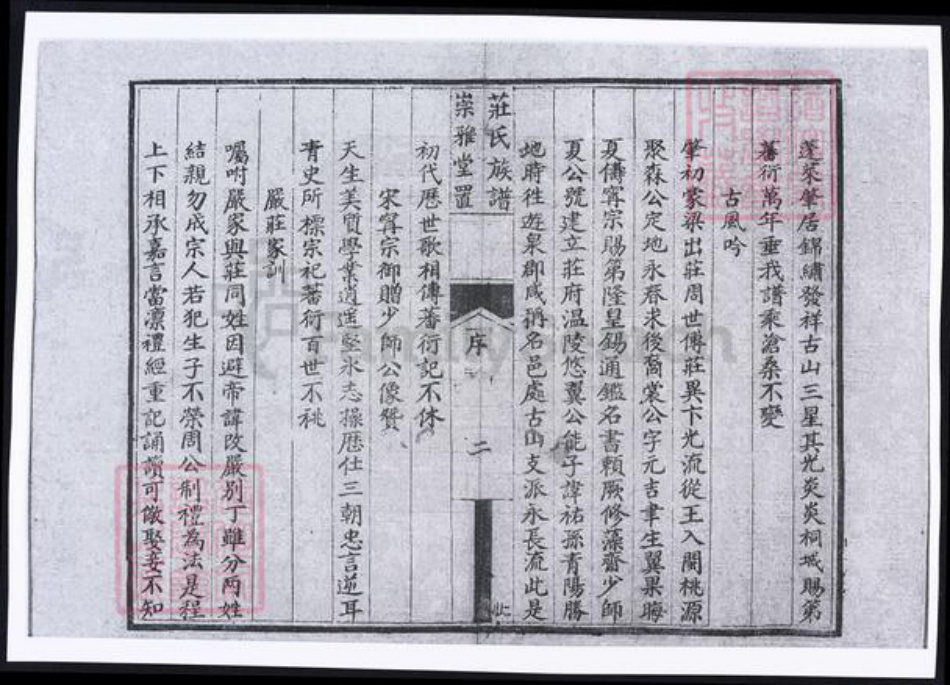 蓬萊肇居錦繡發祥古山三星其光炎炎桐城賜第
蕃衍萬年垂我譜乘滄桑不變
古風吟
肇初蒙梁出莊周世傳莊異卞光流從王入閩桃源
聚森公定地永春求後裔裳公字元吉聿生翼果晦
夏儔寗宗賜第隆皇錫通鑑名書賴厥修藻齋少師
夏公號建立莊府温陵悠翼公能子諱祐孫青陽勝
地時徃遊泉郡咸稱名邑處古山支派永長流此是
莊氏族譜
崇雅堂置
序
二
初代歷世歌相傳蕃衍記不休
宋寗宗御贈少師公像贊
天生美質學業逍遥堅氷志操歷仕三朝忠言逆耳
青史所標宗祀蕃衍百世不祧
嚴莊家訓
囑咐嚴家與莊同姓因避帝諱改嚴别丁雖分两姓
結親勿成宗人若犯生子不榮周公制禮為法是程
上下相承嘉言當凛禮經重記誦讀可儆娶妾不知